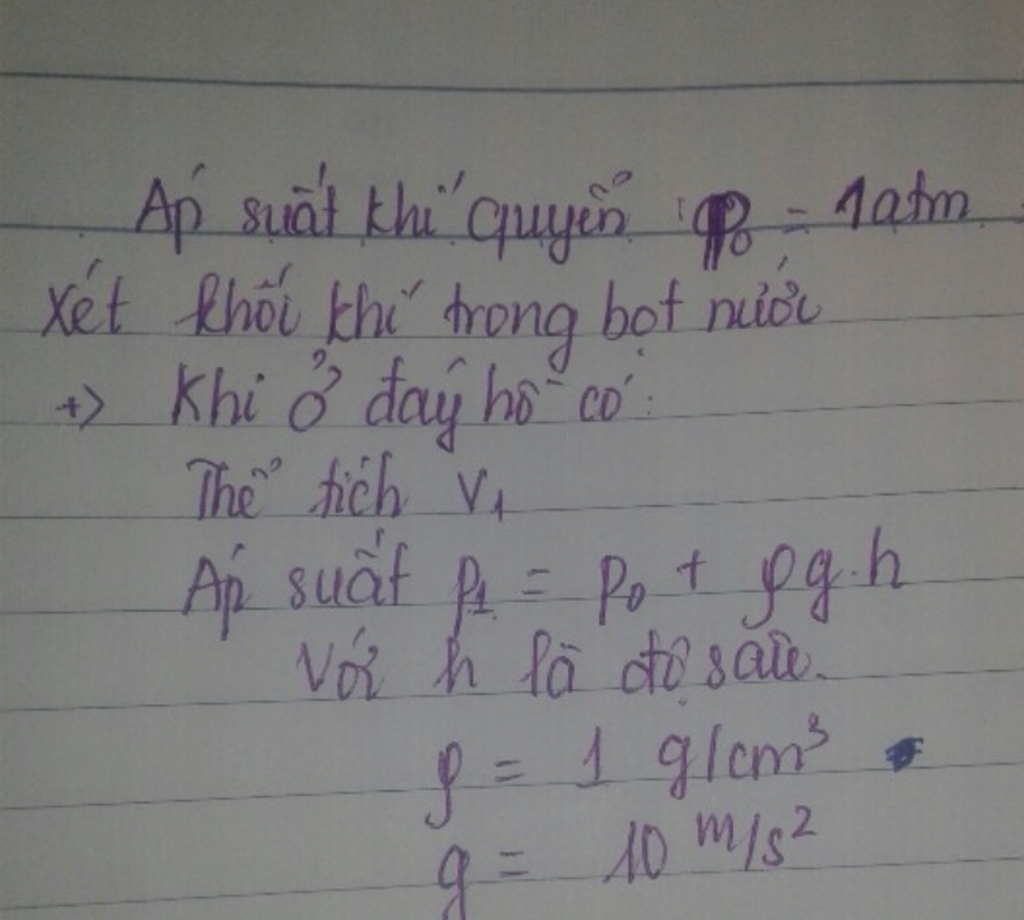 Áp suất khí quyển : p₀ = 1atm
Xét khối khí trong bọt nước
+> Khi ở đáy hồ có:
Thể tích V₁
Áp suất p₁ = p₀ + ρg.h
Với h là độ sâu.
ρ = 1 g/cm³
g = 10 m/s²